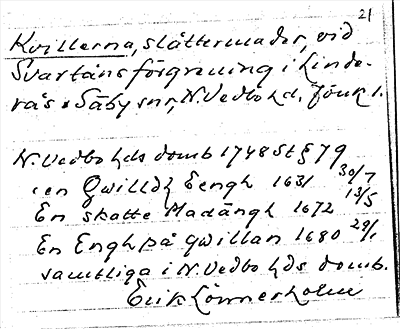 21
Kvillerna, slåttermader, vid
Svartåns förgrening i Linde-
rås o Säby snr, N. Vedbo hd. Jönk l.
N. Vedbo hds domb 1748 St § 79
en Qwilldz Eengh 1631 30/7
En skatte Madängh 1672 13/5
En Engh på qwillan 1680 29/1
samtliga i N. Vedbo hds domb.
Erik Lönnerholm